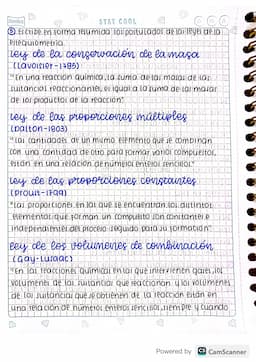 STAY COOL
⑤ Escribe en forma resumida los postulados de las leyes de la
Estequiometría.
Ley de la conservación de la masa
(Lavoisier-1785)
"En una reacción química, la suma de las masas de las
sustancias reaccionantes, es igual a la suma de las masas
de los productos de la reacción"
Ley de las proporciones múltiples
(Dalton-1803)
"Las cantidades de un mismo elemento que se combinan
con una cantidad de otro para formar varios compuestos,
están en una relación de números enteros sencillos."
Ley de las proporciones constantes
(Proust-1799)
"Las proporciones en las que se encuentran los distintos
elementos que forman un compuesto son constantes e
independientes del proceso seguido para su formación"
Ley de los volúmenes de combinación
(Gay-Lussac)
"En las reacciones químicas en las que intervienen gases, los
volúmenes de las sustancias que reaccionan y los volúmenes
de las sustancias que se obtienen de la reacción están en
una relación de números enteros sencillos, siempre y cuando
Powered by CS CamScanner